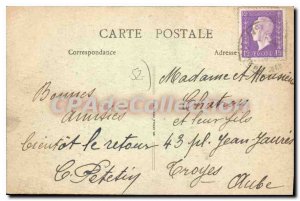 CARTE POSTALE
Correspondance
Adresse
52
Bonnes
amitiés
Bientôt le retour
C. Petetin
Madame et Monsieur
Chatery
et leur fils
43 pl. Jean Jaurès
Troyes
Aube